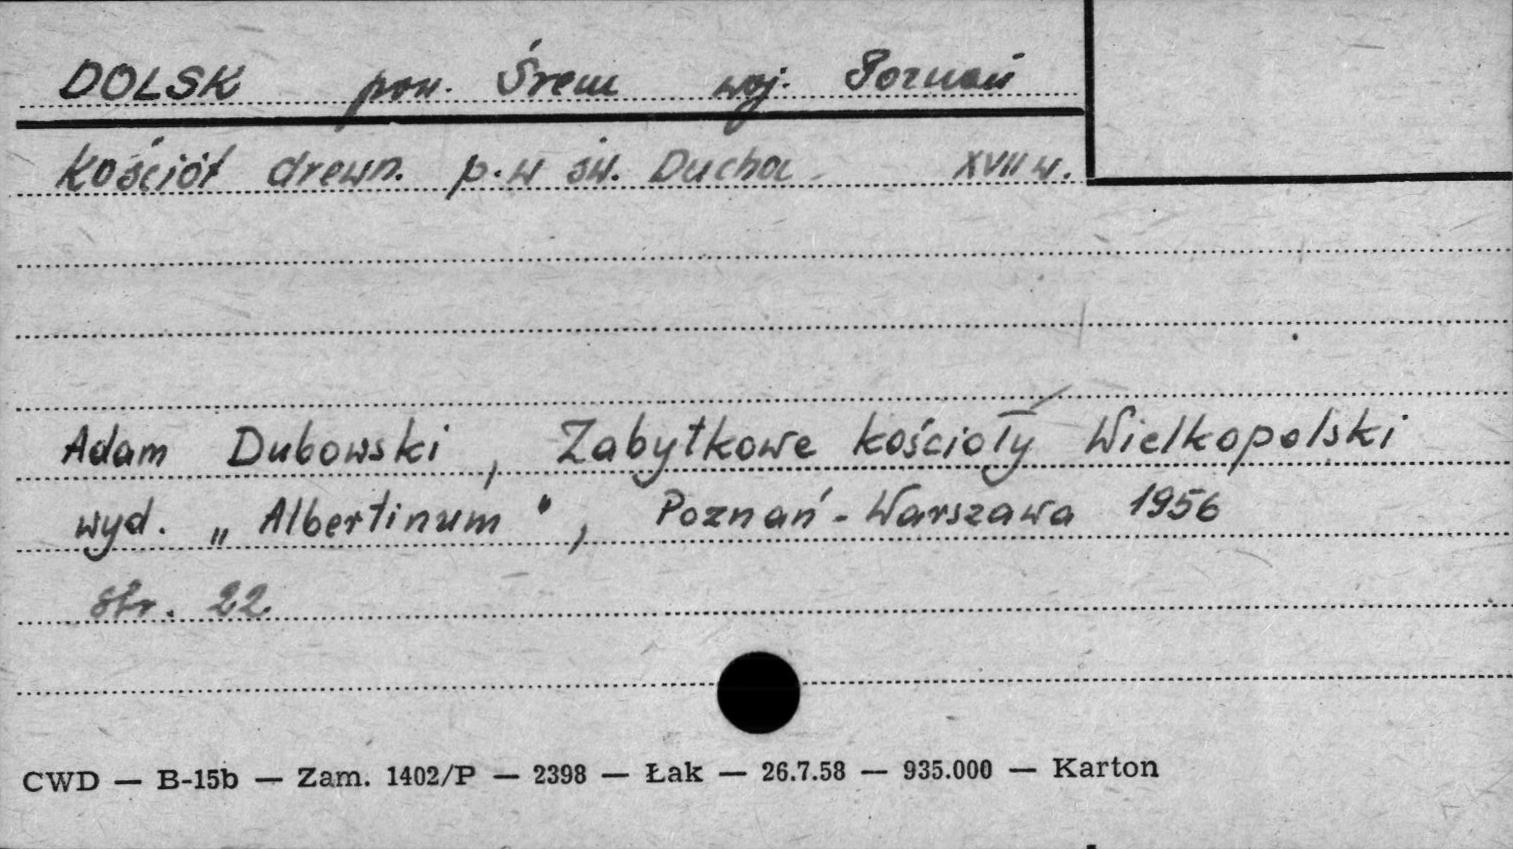 DOLSK pow. Śrem woj. Poznań
Kościół drewn. p.w św. Ducha XVII w.
Adam Dubowski, Zabytkowe kościoły Wielkopolski
wyd. „Albertinum", Poznań - Warszawa 1956
str. 22
CWD — B-15b — Zam. 1402/P — 2398 — Łak — 26.7.58 — 935.000 — Karton